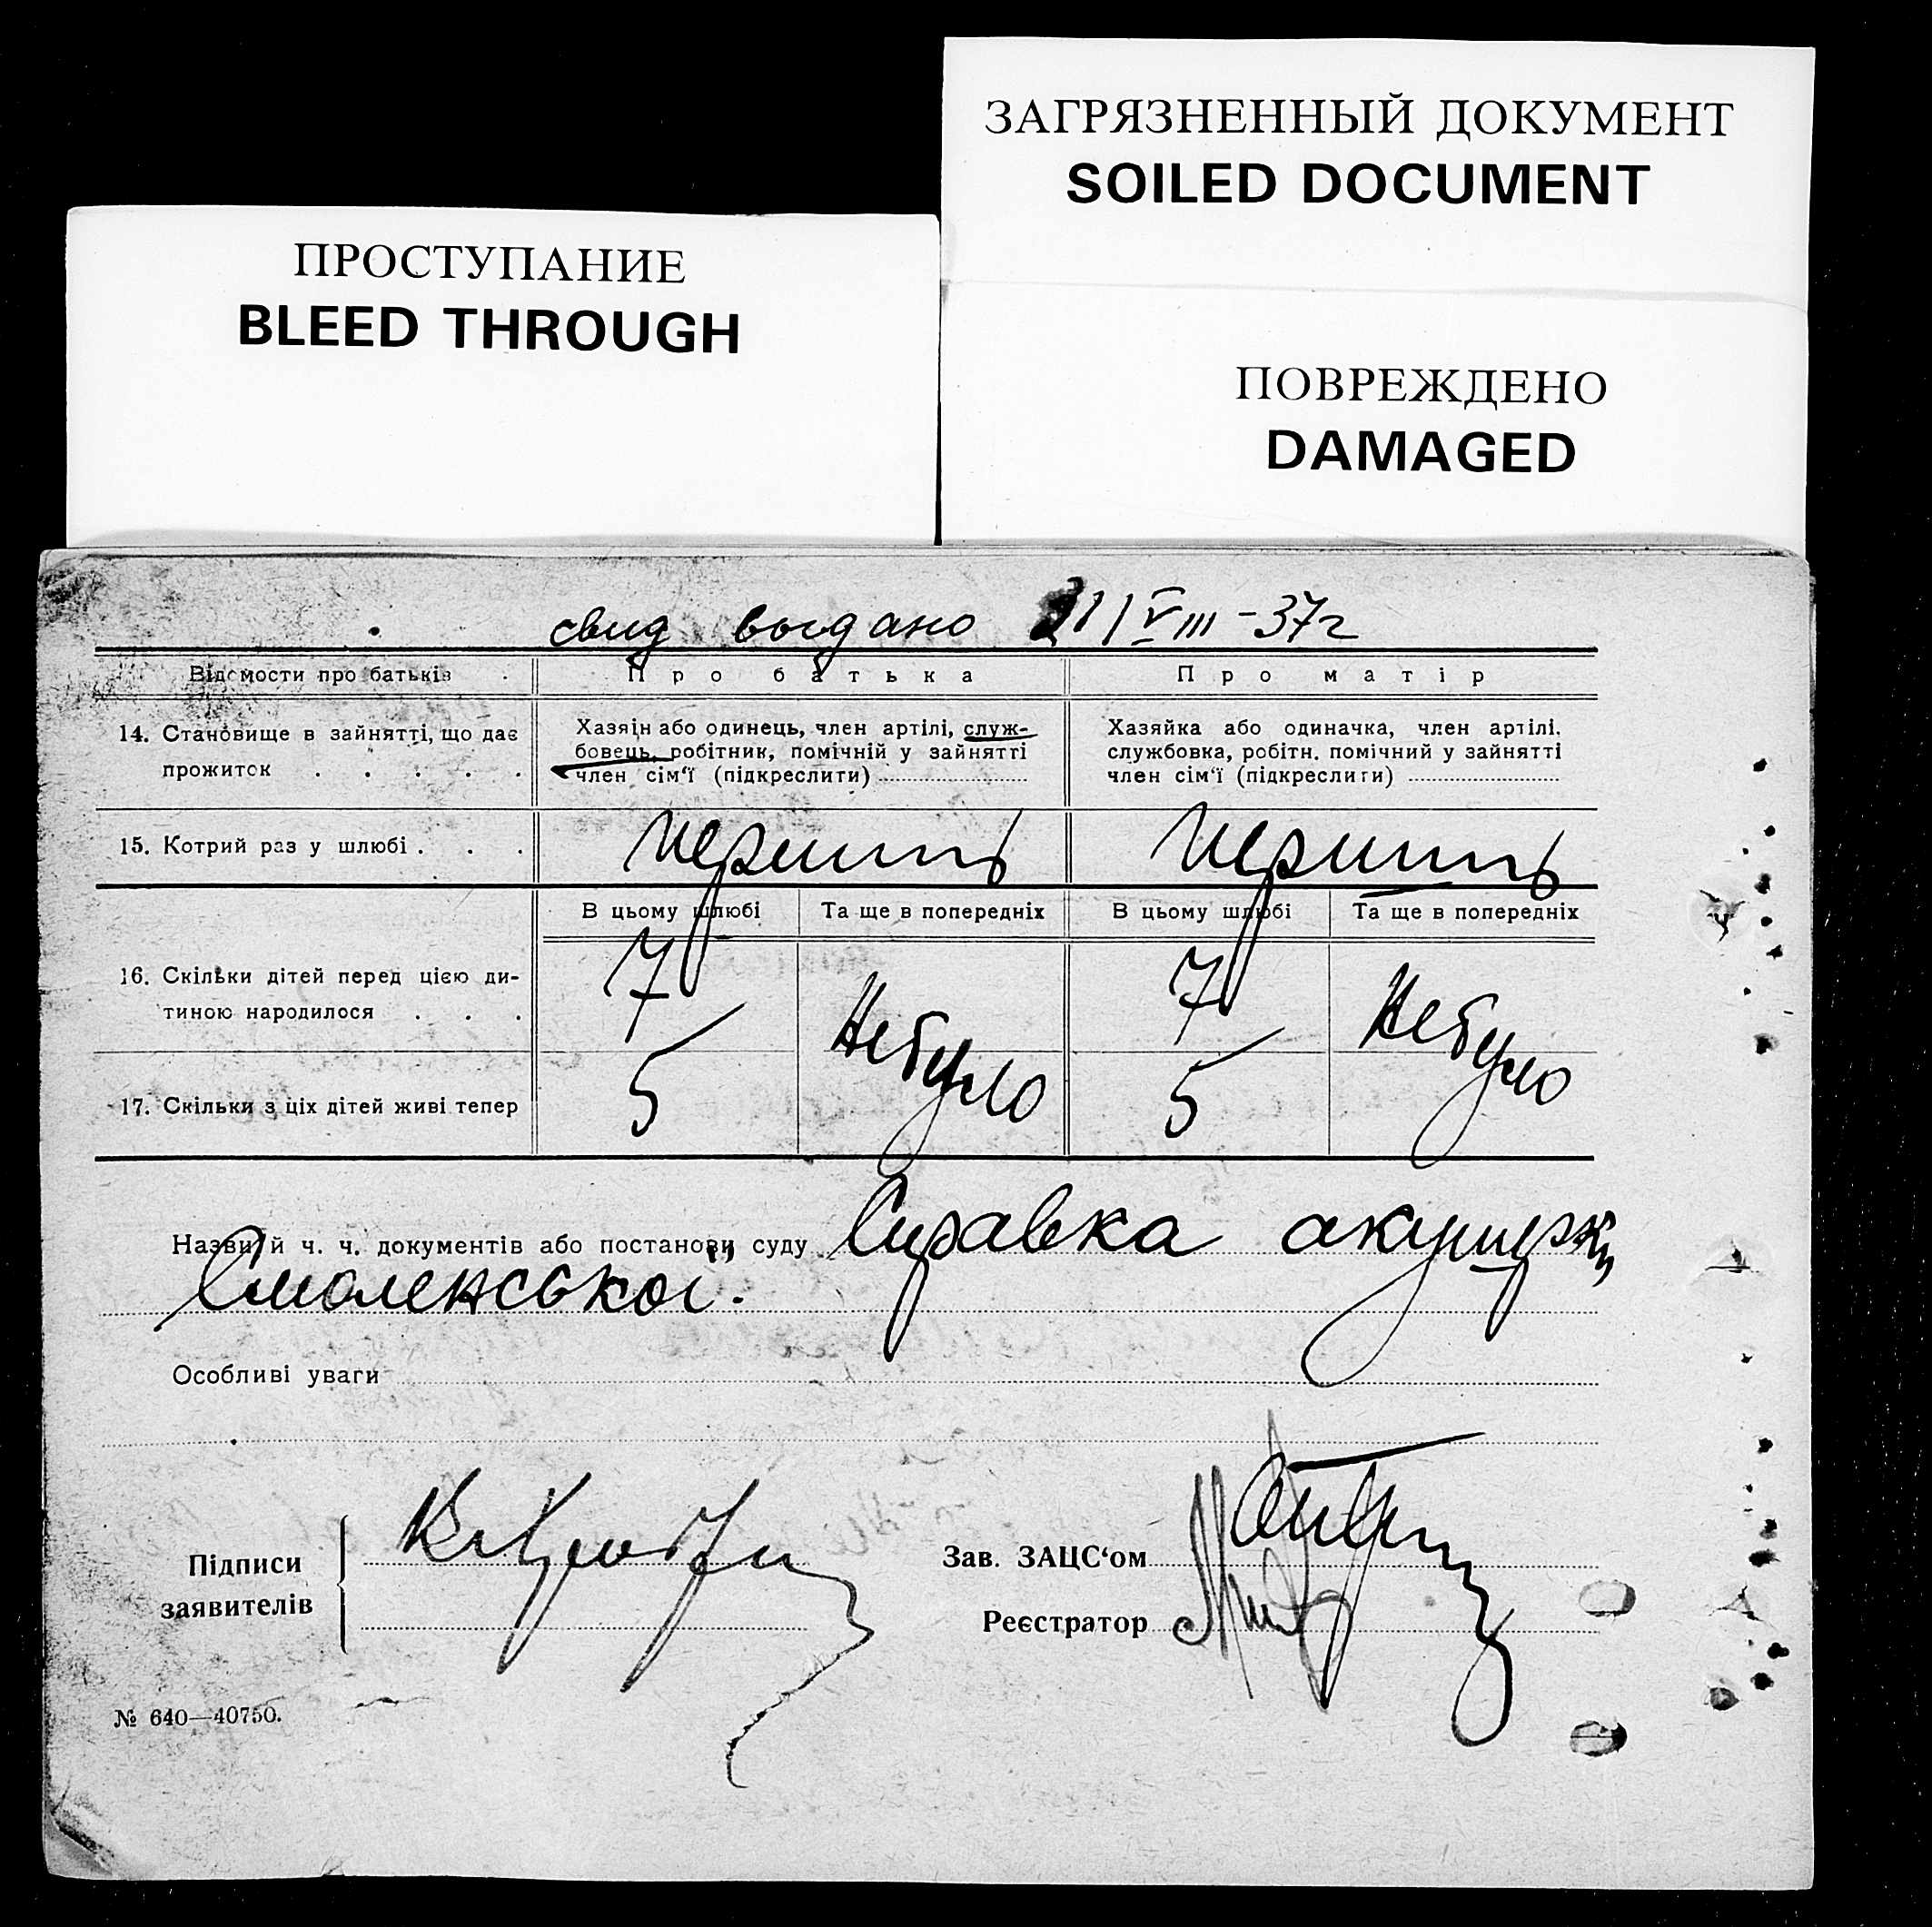 ЗАГРЯЗНЕННЫЙ ДОКУМЕНТ
SOILED DOCUMENT
ПРОСТУПАНИЕ
BLEED THROUGH
ПОВРЕЖДЕНО
DAMAGED
свид выдано 21/VIII-37г
Відомости про батьків
Про батька
Про матір
14. Становище в зайнятті, що дає
прожиток . . . . .
Хазяїн або одинець, член артілі, служ-
бовець, робітник, помічній у зайнятті
член сім'ї (підкреслити)
Хазяйка або одиначка, член артілі,
службовка, робітн. помічний у зайнятті
член сім'ї (підкреслити)
15. Котрий раз у шлюбі . . .
перший
перший
В цьому шлюбі
Та ще в попередніх
В цьому шлюбі
Та ще в попередніх
16. Скільки дітей перед цією ди-
тиною народилося . . .
7
Небуло
7
Небуло
17. Скільки з ціх дітей живі тепер
5
5
Назви й ч. ч. документів або постанови суду Справка акушерки
Смоленської.
Особливі уваги
Підписи
заявителів
Зав. ЗАЦС'ом
Реєстратор
№ 640—40750.